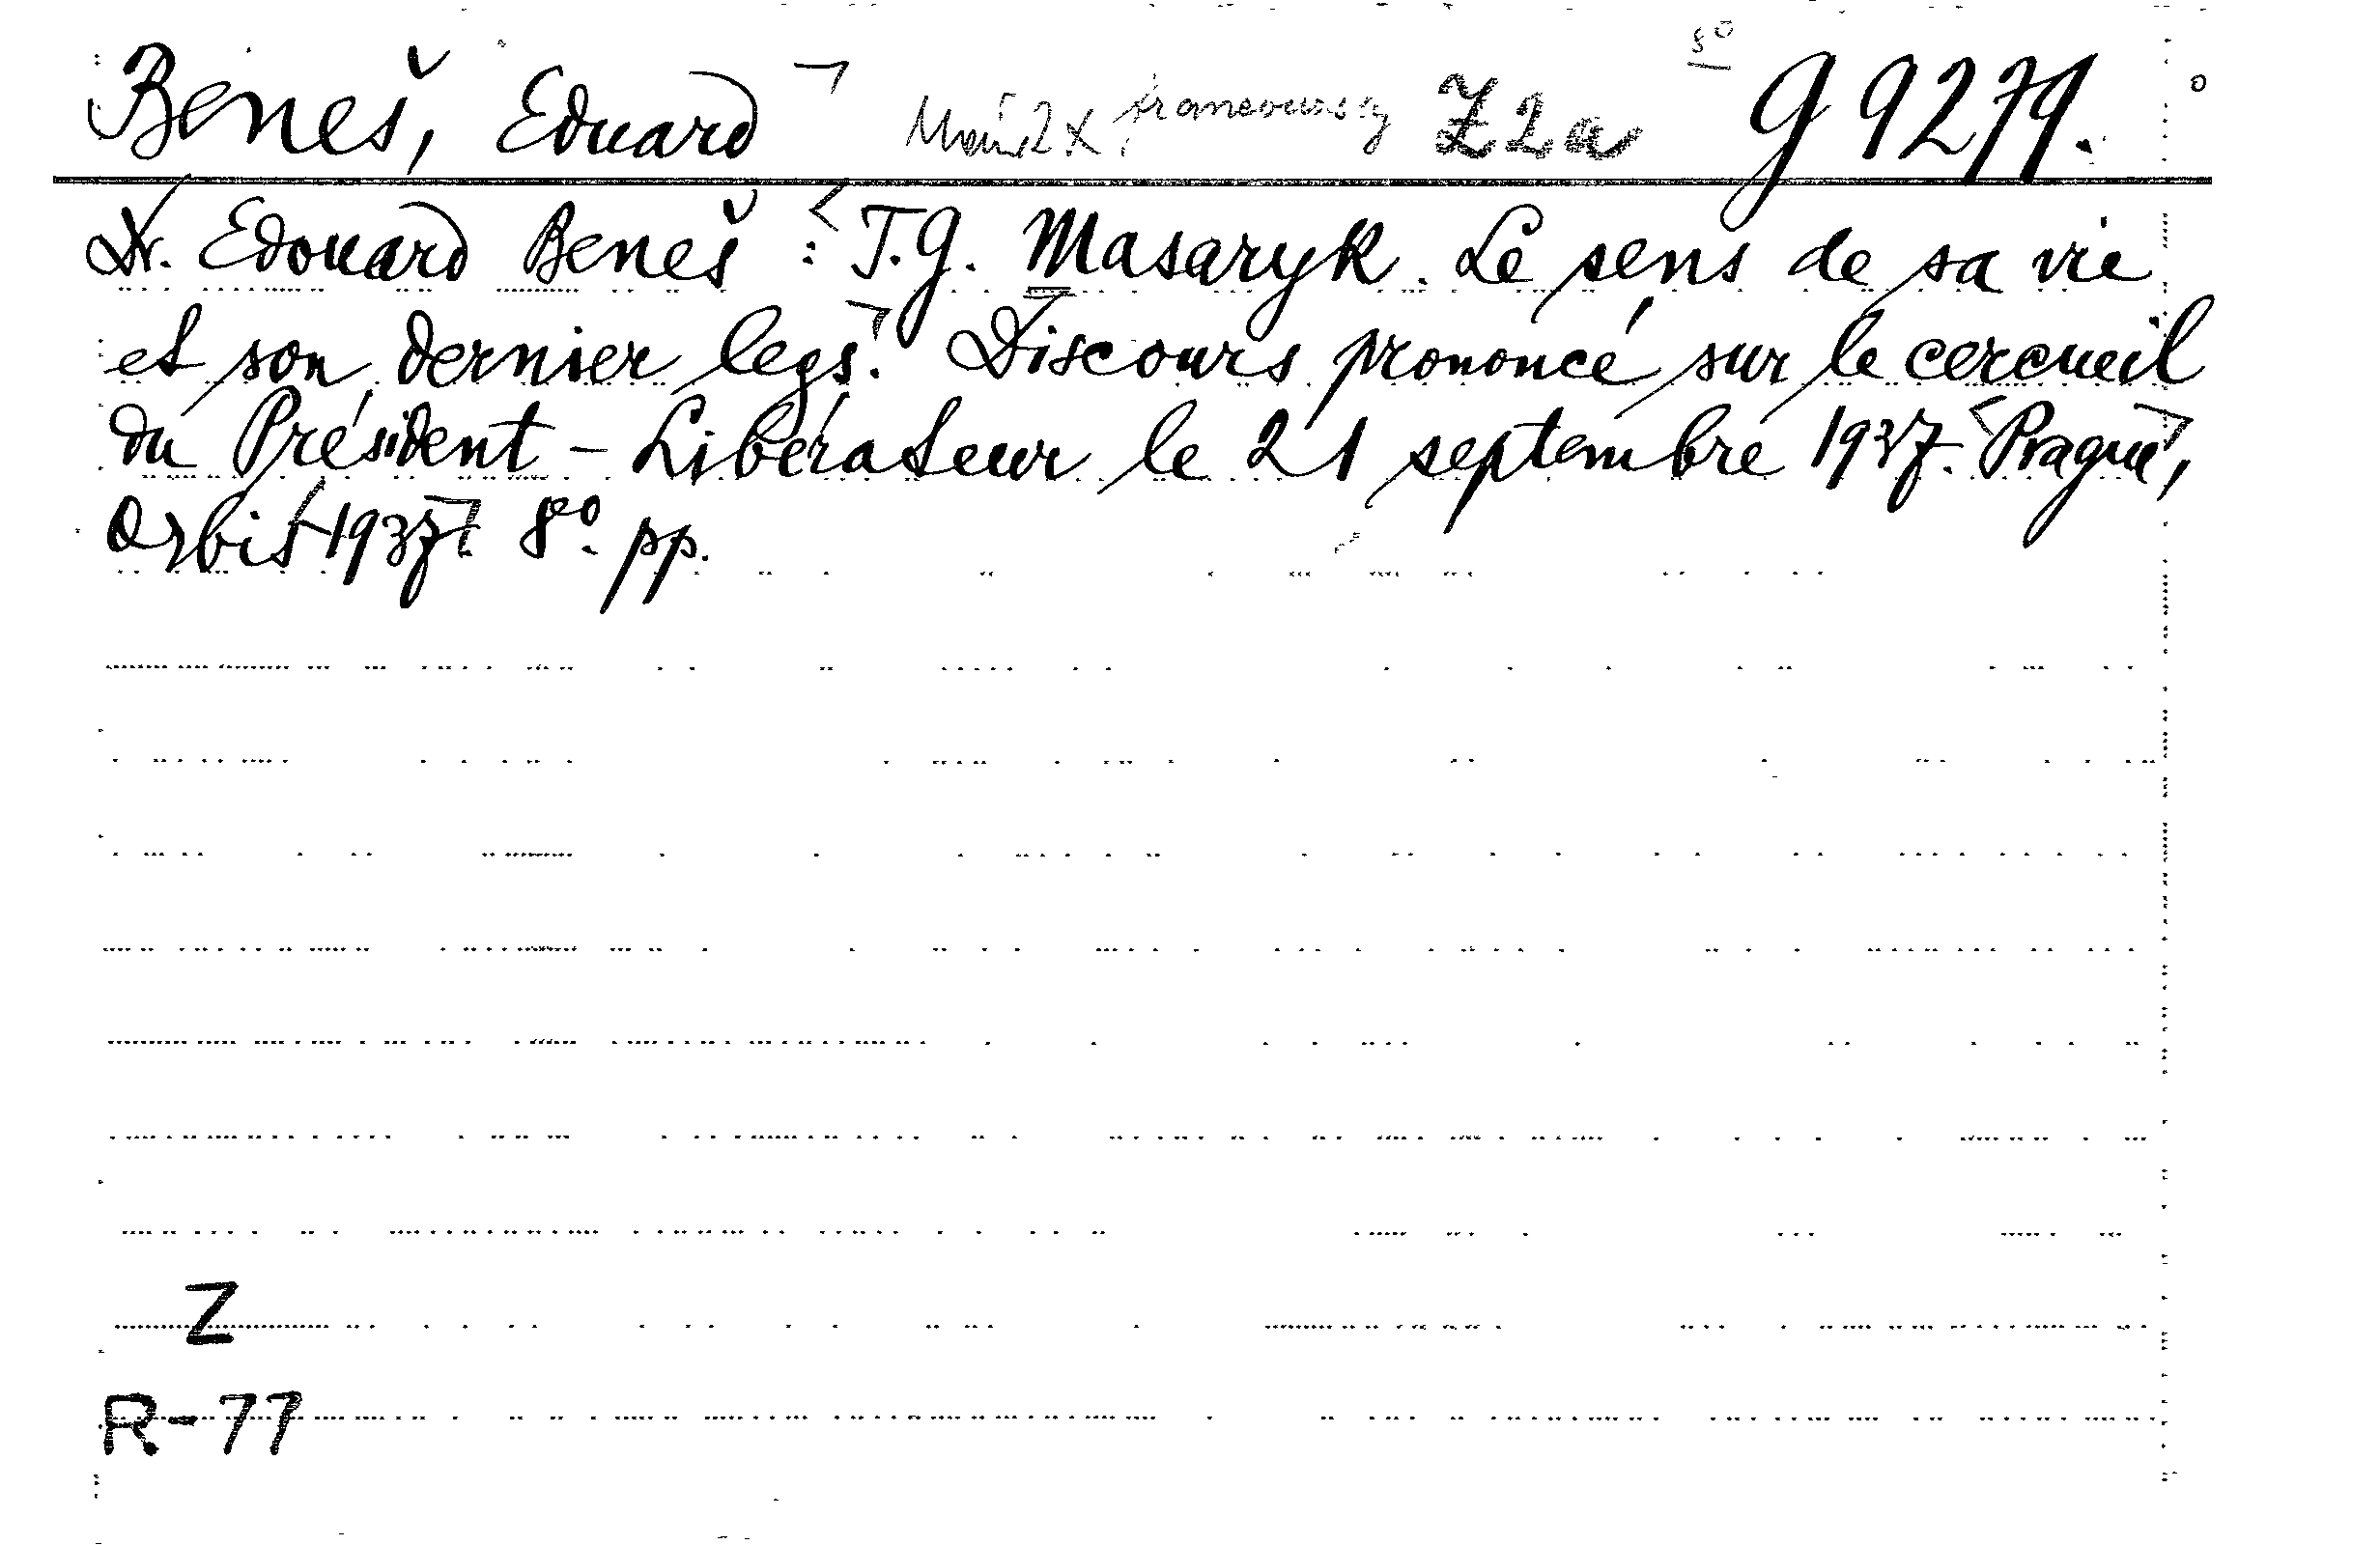 Beneš, Eduard francouzsky Z2a 8° G 9279.
Dr. Edouard Beneš : T.G. Masaryk. Le sens de sa vie
et son dernier legs. Discours prononcé sur le cercueil
du Président - Libérateur le 21 septembre 1937. Prague,
Orbis 1937. 8°. pp.
Z
R-77